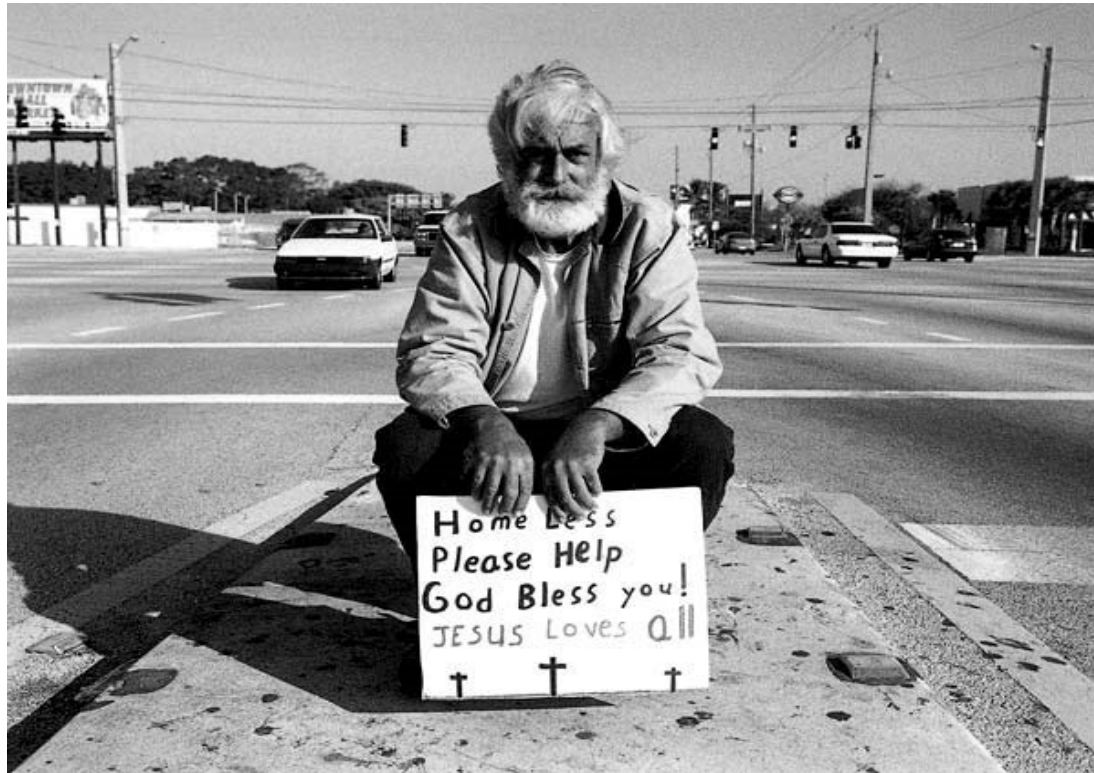 Home Less
Please Help
God Bless you!
JESUS Loves All